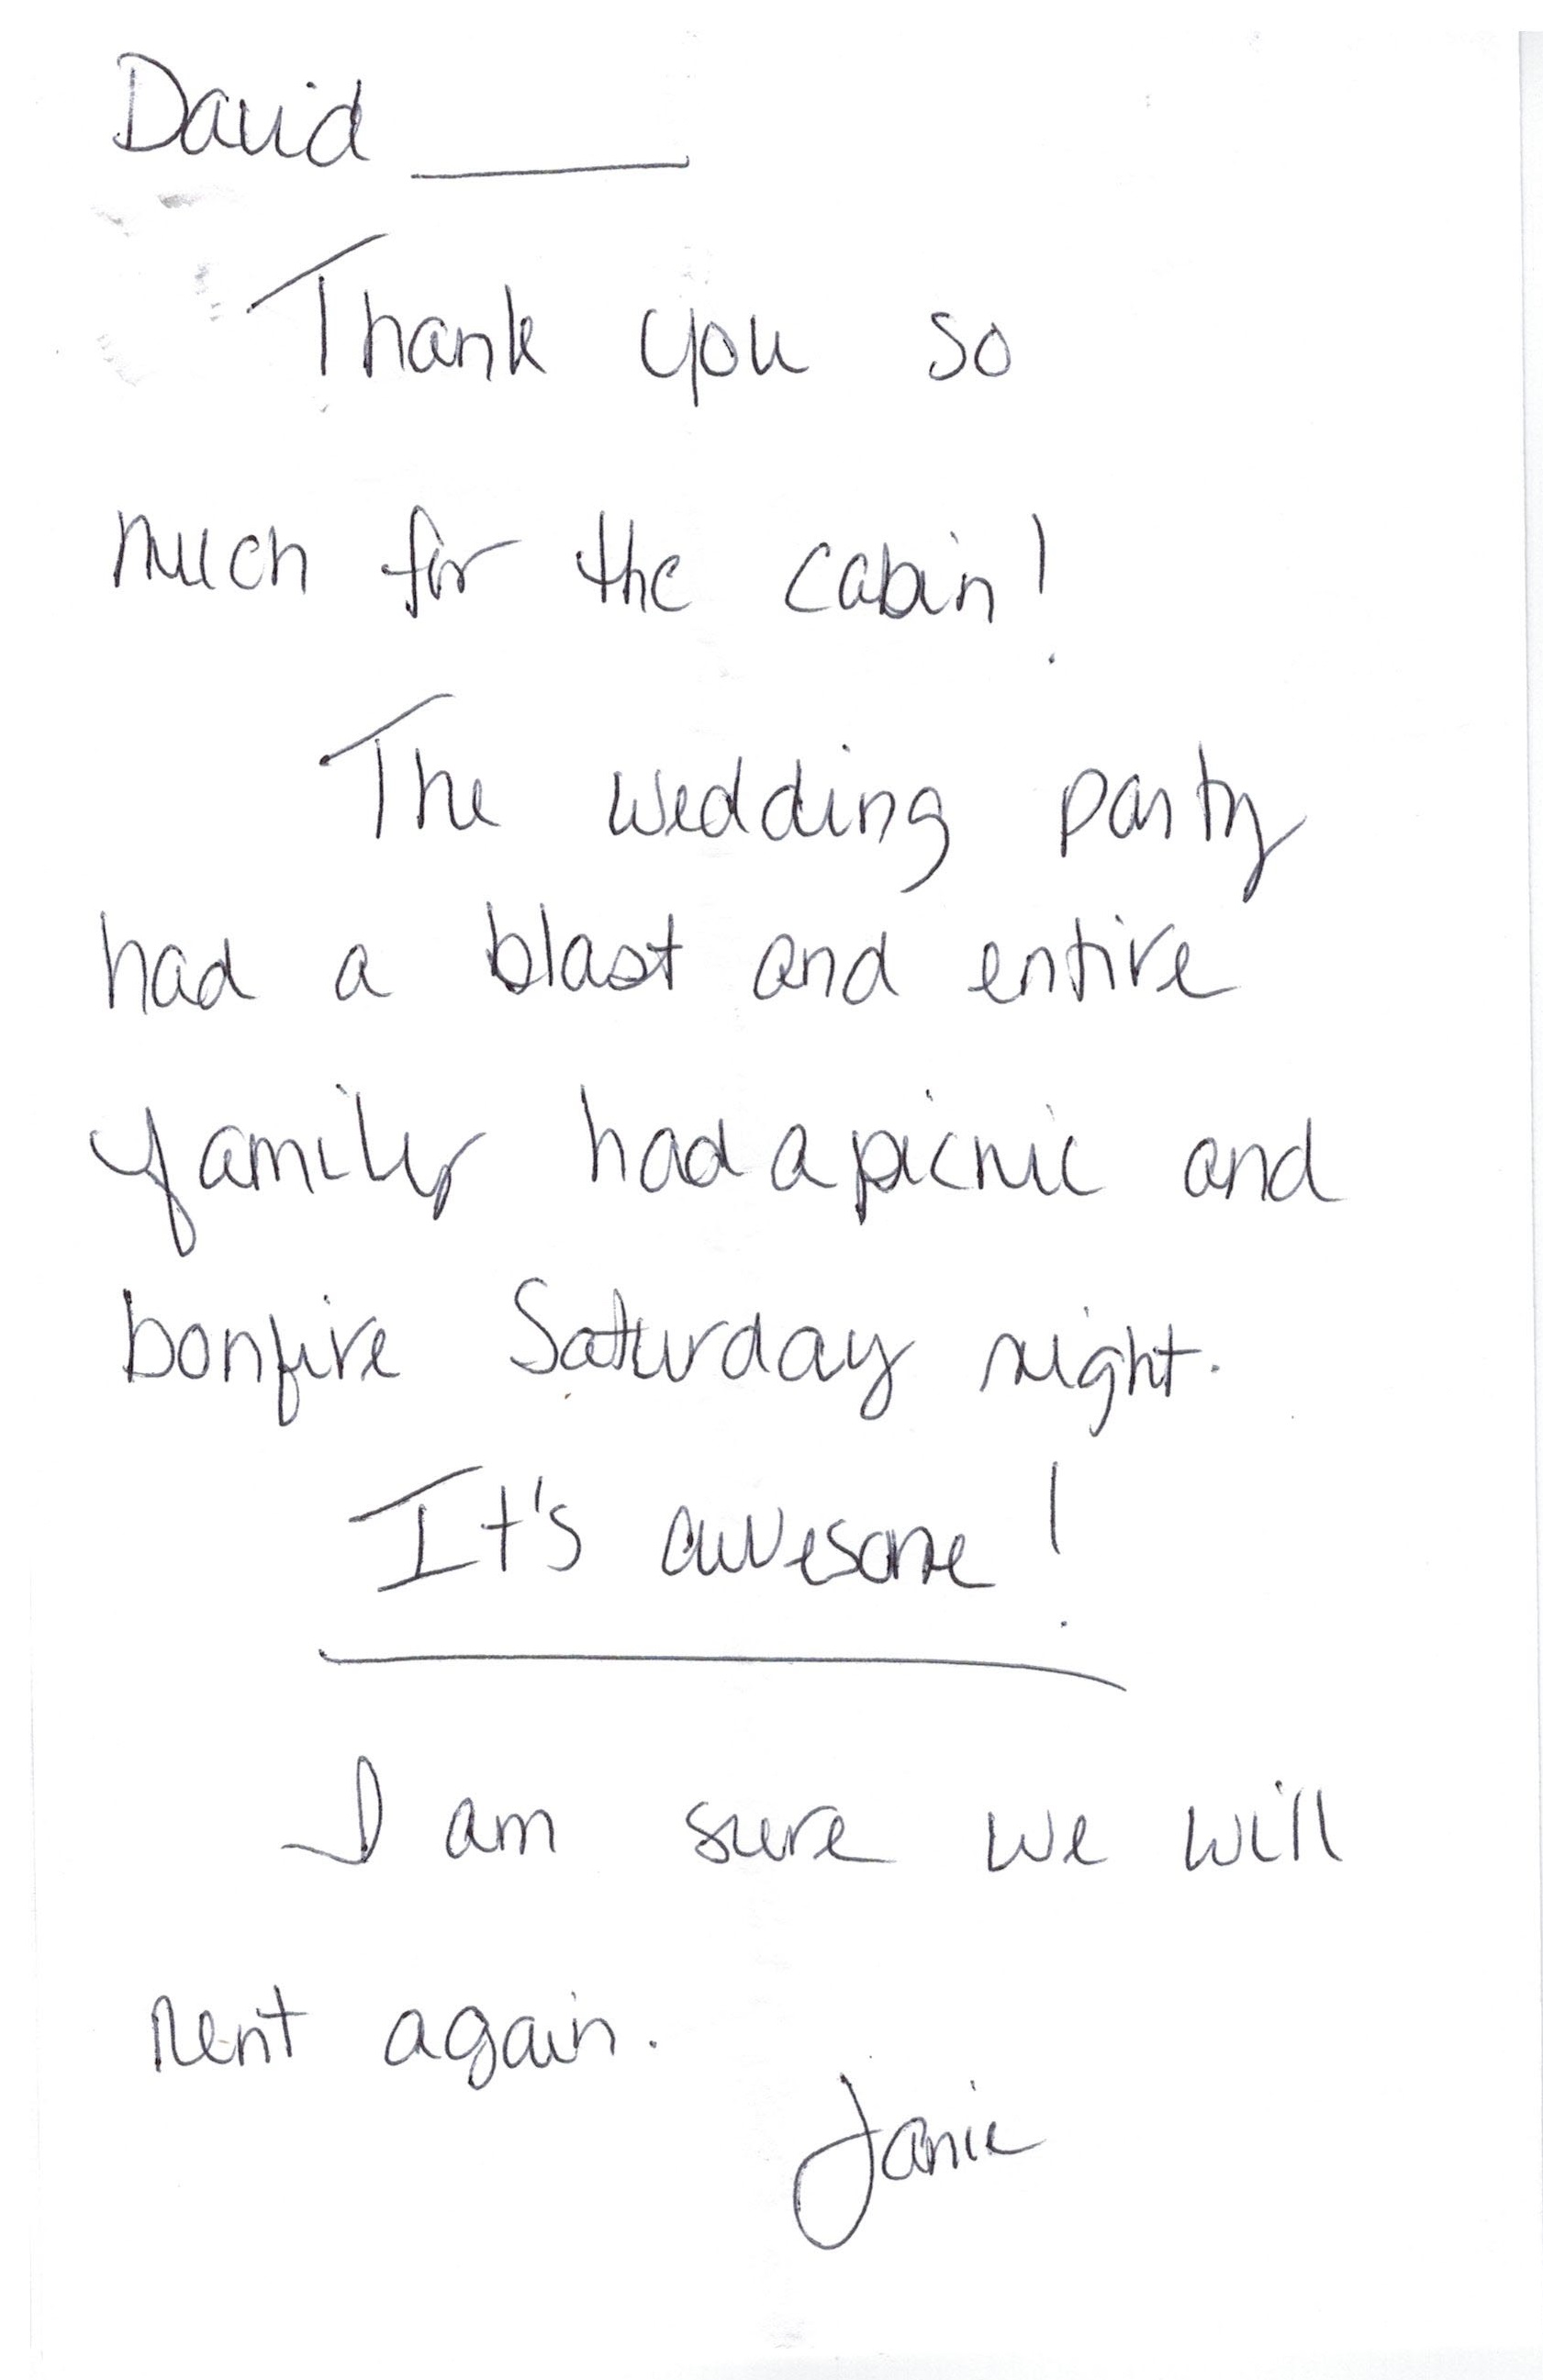 David ____
Thank you so
much for the cabin!
The wedding party
had a blast and entire
family had a picnic and
bonfire Saturday night.
It's awesome!
I am sure we will
rent again.
Janie